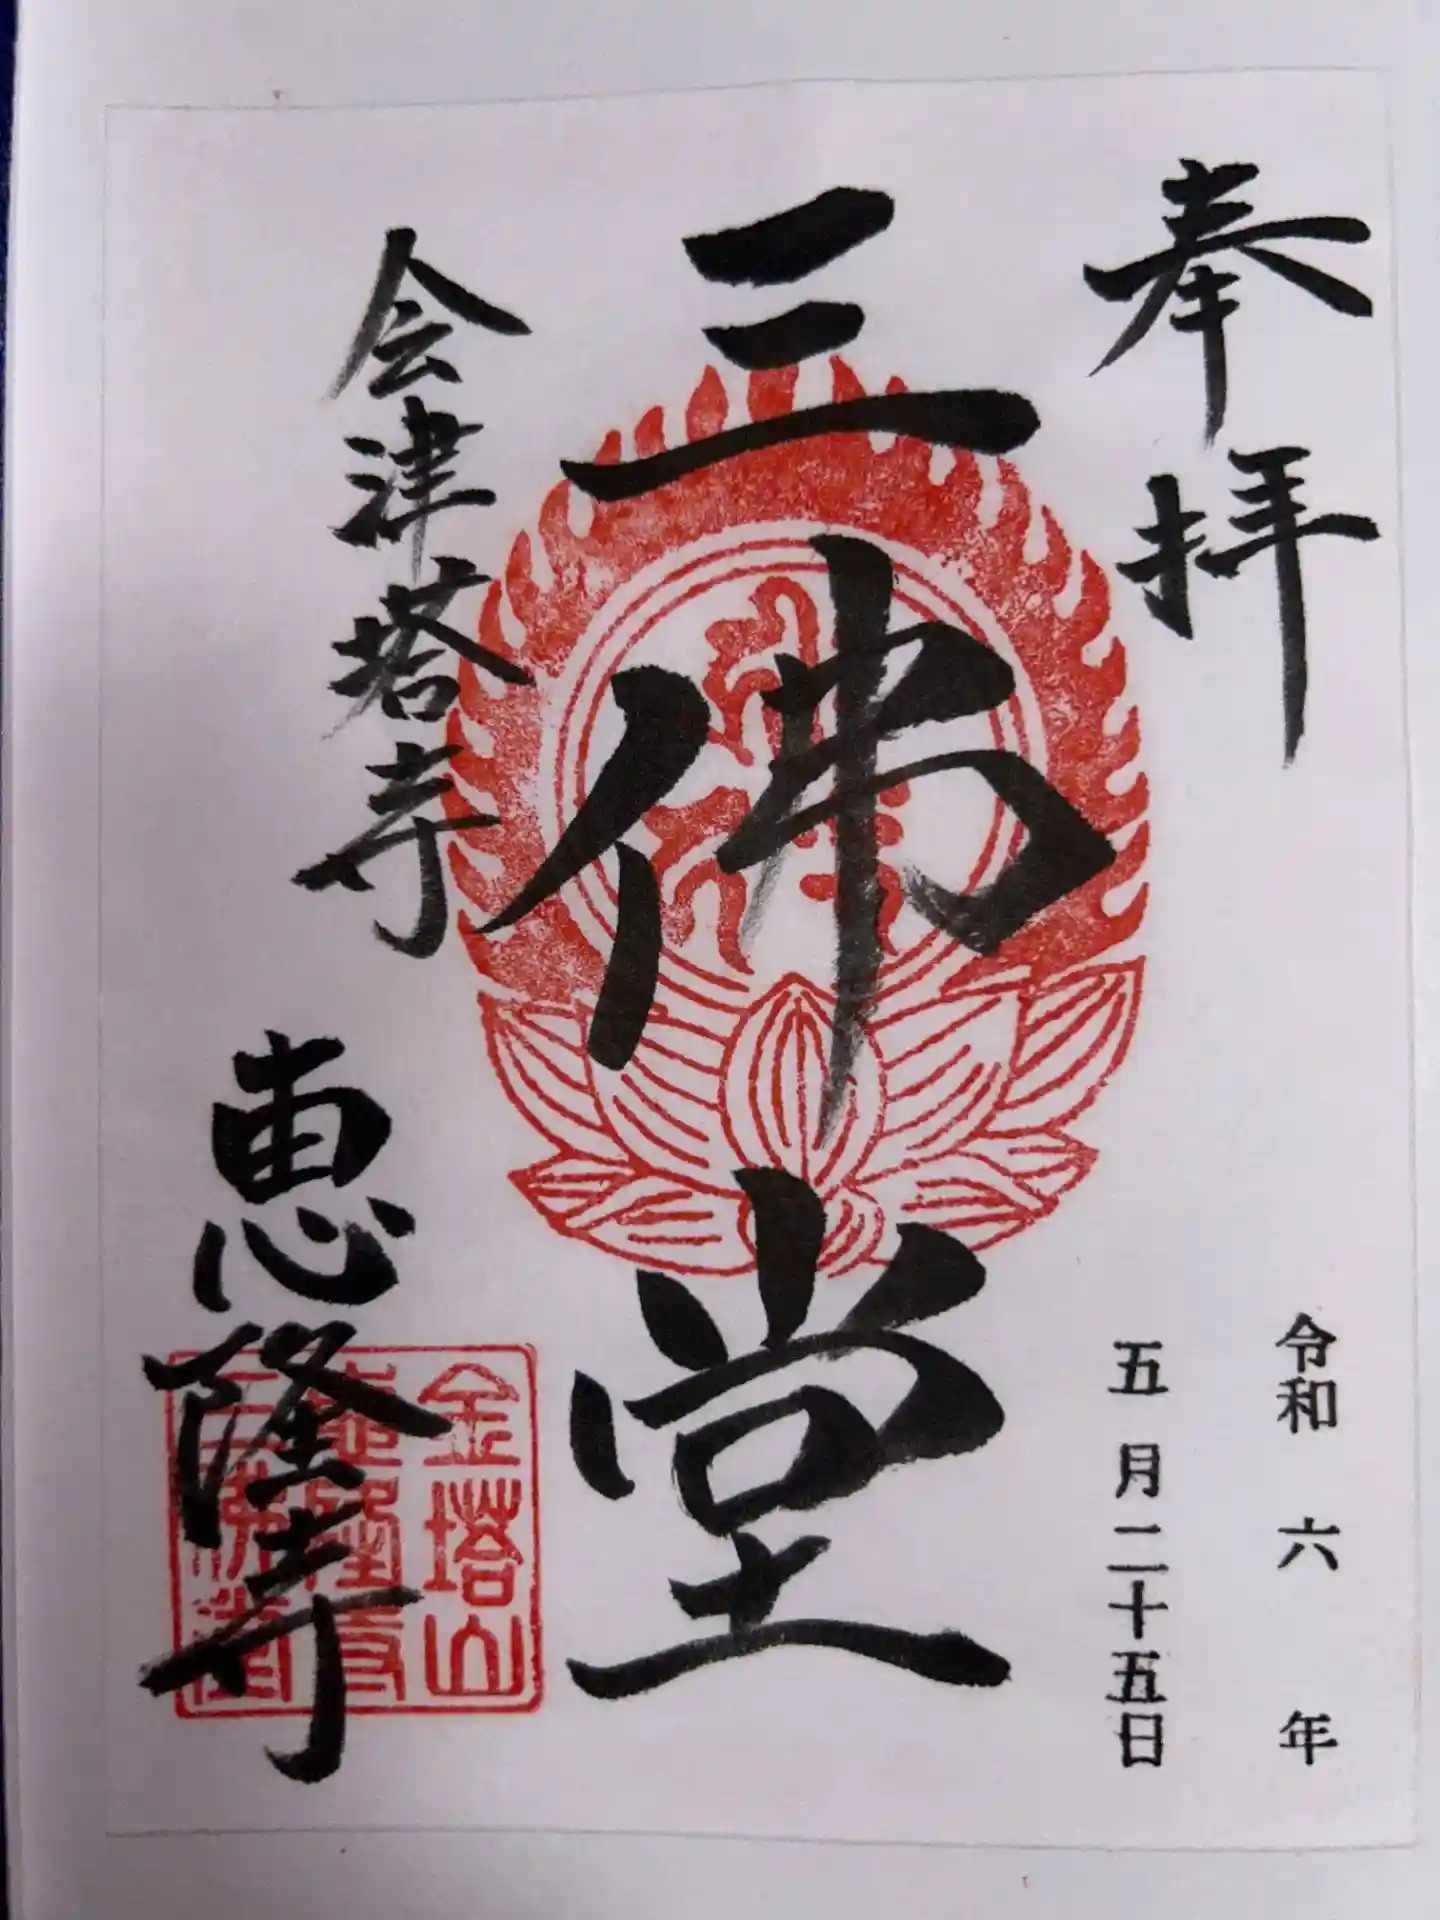 奉拝
令和 六 年
五月二十五日
三佛堂
会津塔寺
恵隆寺
金塔山
恵隆寺
三佛堂